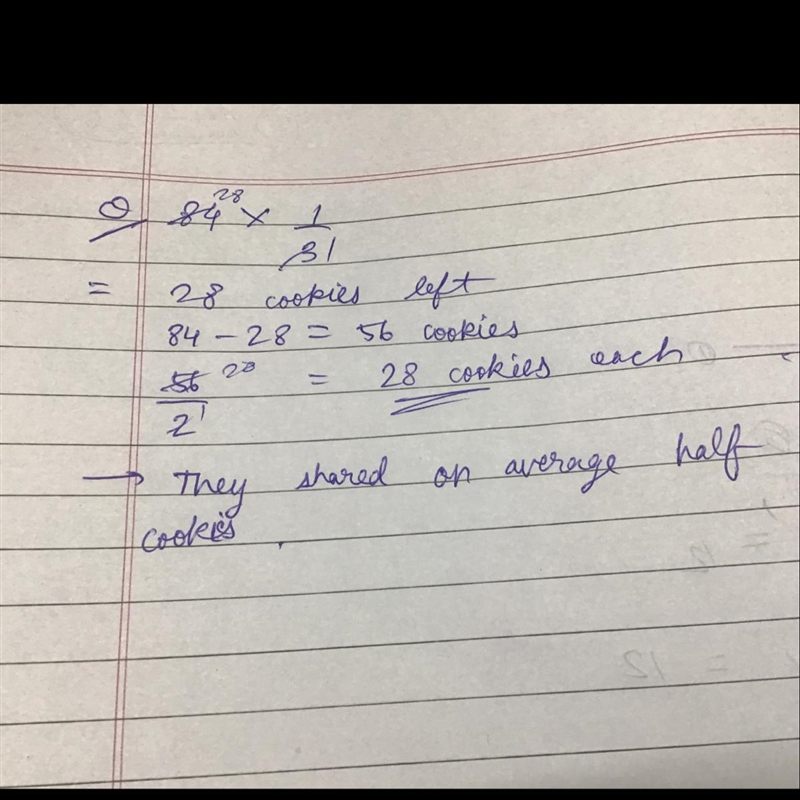 Q 84 28 × 1/31
= 28 cookies left
84 - 28 = 56 cookies
56 28 / 2 1 = 28 cookies each
→ They shared on average half
cookies.
= 12